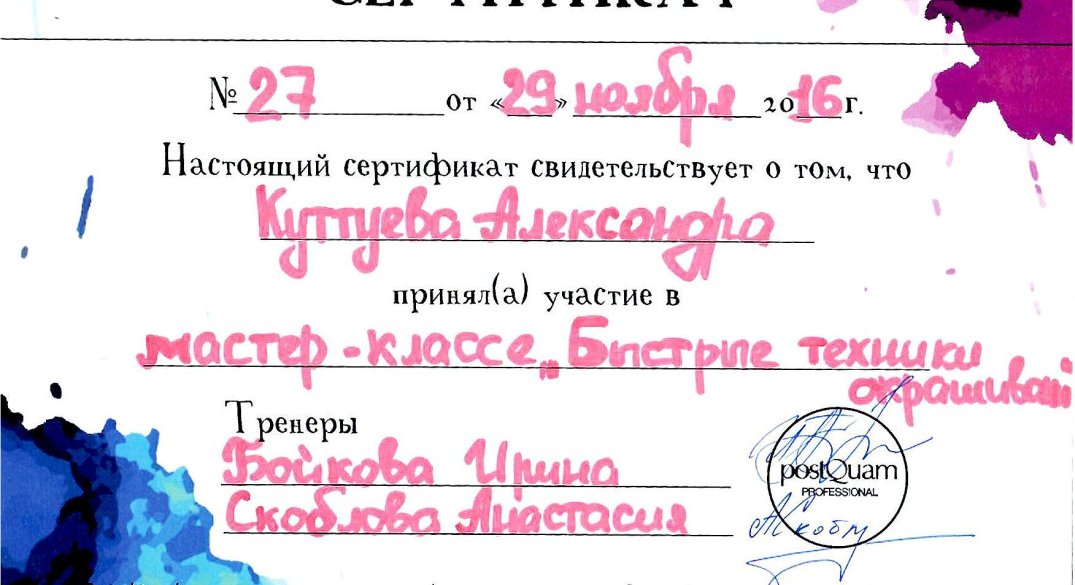 СЕРТИФИКАТ
№ 27 от «29» ноября 2016 г.
Настоящий сертификат свидетельствует о том, что
Куттуева Александра
принял(а) участие в
мастер-классе „Быстрые техники
окрашиван
Тренеры
Бойкова Ирина
Скоблова Анастасия
postQuam
PROFESSIONAL